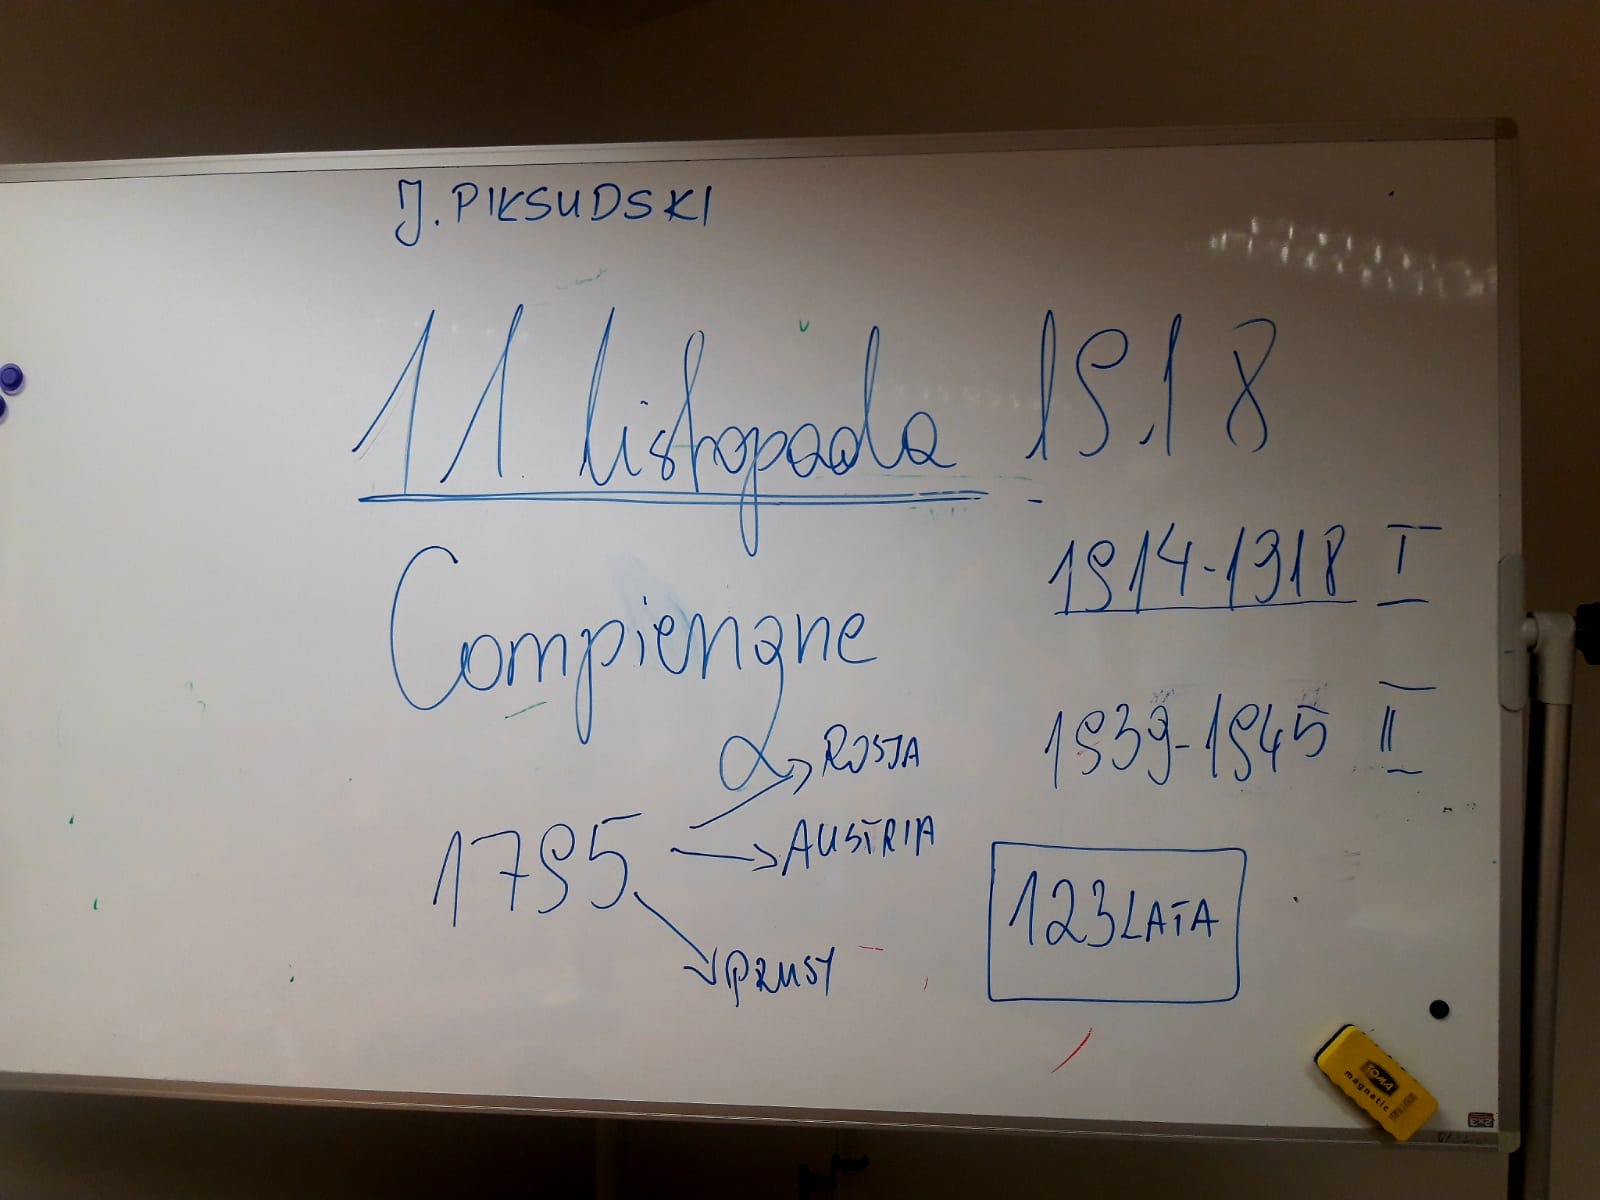 J. PIŁSUDSKI
11 listopada 1918
Compiengne
1914-1918 I
1939-1945 II
1795
ROSJA
AUSTRIA
PRUSY
123 LATA
TOMA
magnetic